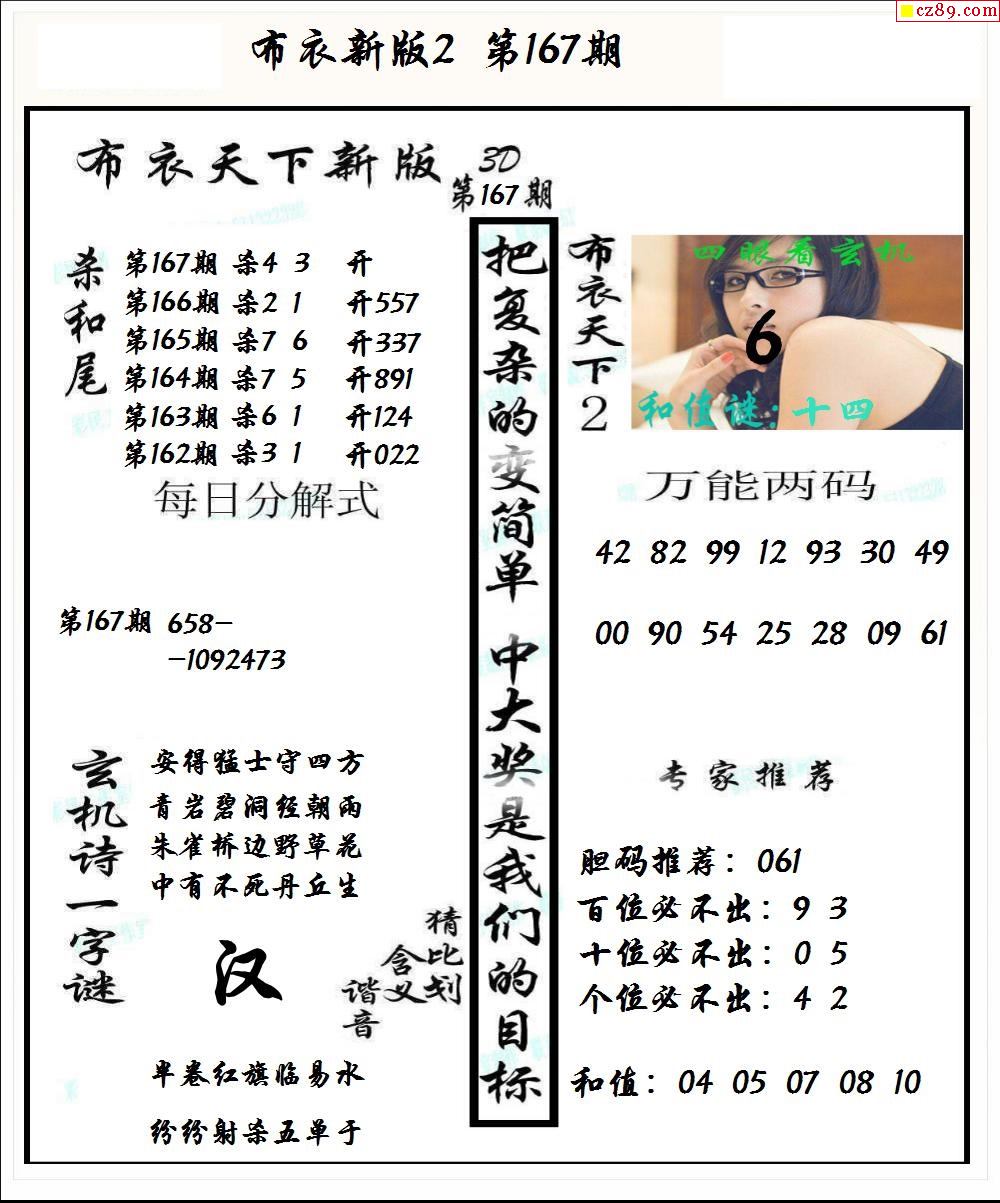 cz89.com
布衣新版2 第167期
布衣天下新版 3D
第167期
杀和尾
第167期 杀4 3 开
第166期 杀2 1 开557
第165期 杀7 6 开337
第164期 杀7 5 开891
第163期 杀6 1 开124
第162期 杀3 1 开022
每日分解式
第167期 658-
-1092473
玄机诗一字谜
安得猛士守四方
青岩碧洞经朝雨
朱雀桥边野草花
中有不死丹丘生
汉
猜比划
含义
谐音
半卷红旗临易水
纷纷射杀五单于
把复杂的变简单 中大奖是我们的目标
布衣天下2
四眼看玄机
6
和值谜:十四
万能两码
42 82 99 12 93 30 49
00 90 54 25 28 09 61
专家推荐
胆码推荐：061
百位必不出：9 3
十位必不出：0 5
个位必不出：4 2
和值：04 05 07 08 10